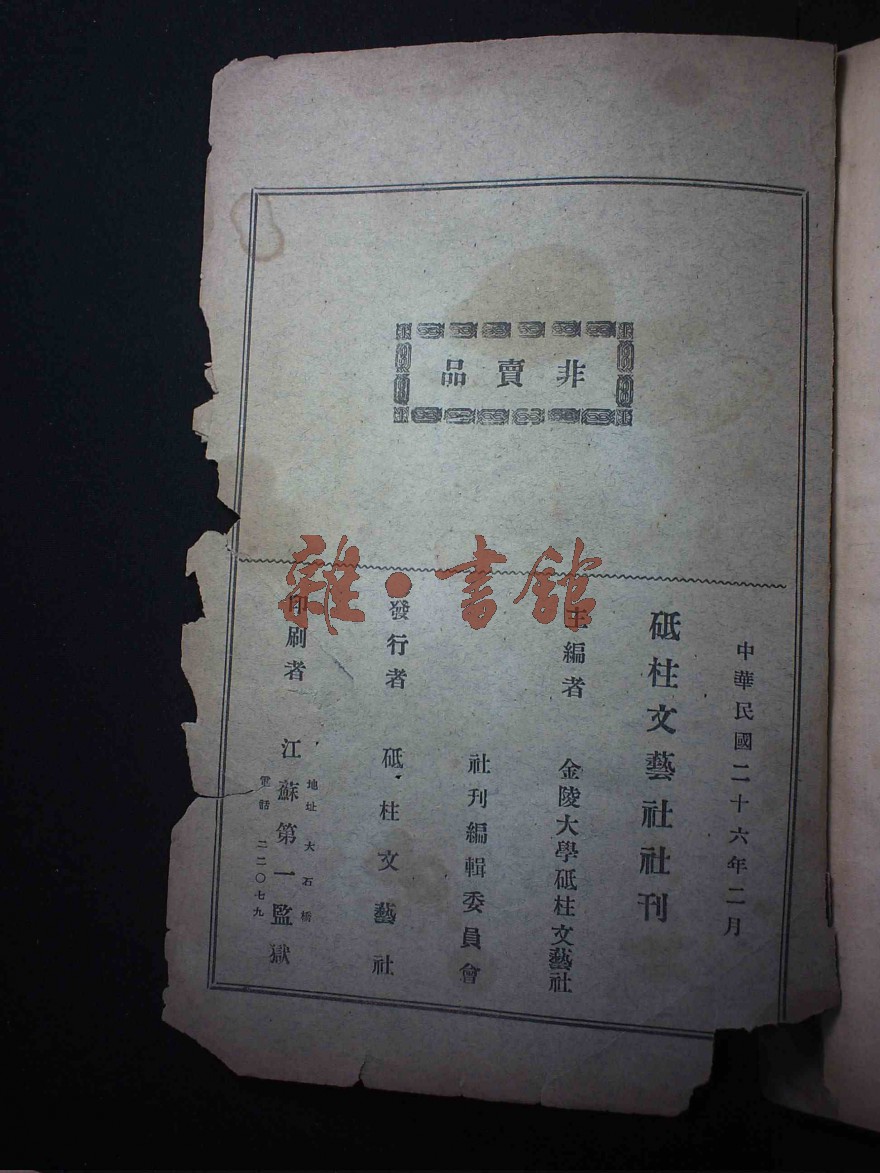 非賣品
中華民國二十六年二月
砥柱文藝社社刊
主編者 金陵大學砥柱文藝社
社刊編輯委員會
發行者 砥柱文藝社
印刷者 江蘇第一監獄
地址 大石橋
電話 二二〇七九
雜·書館